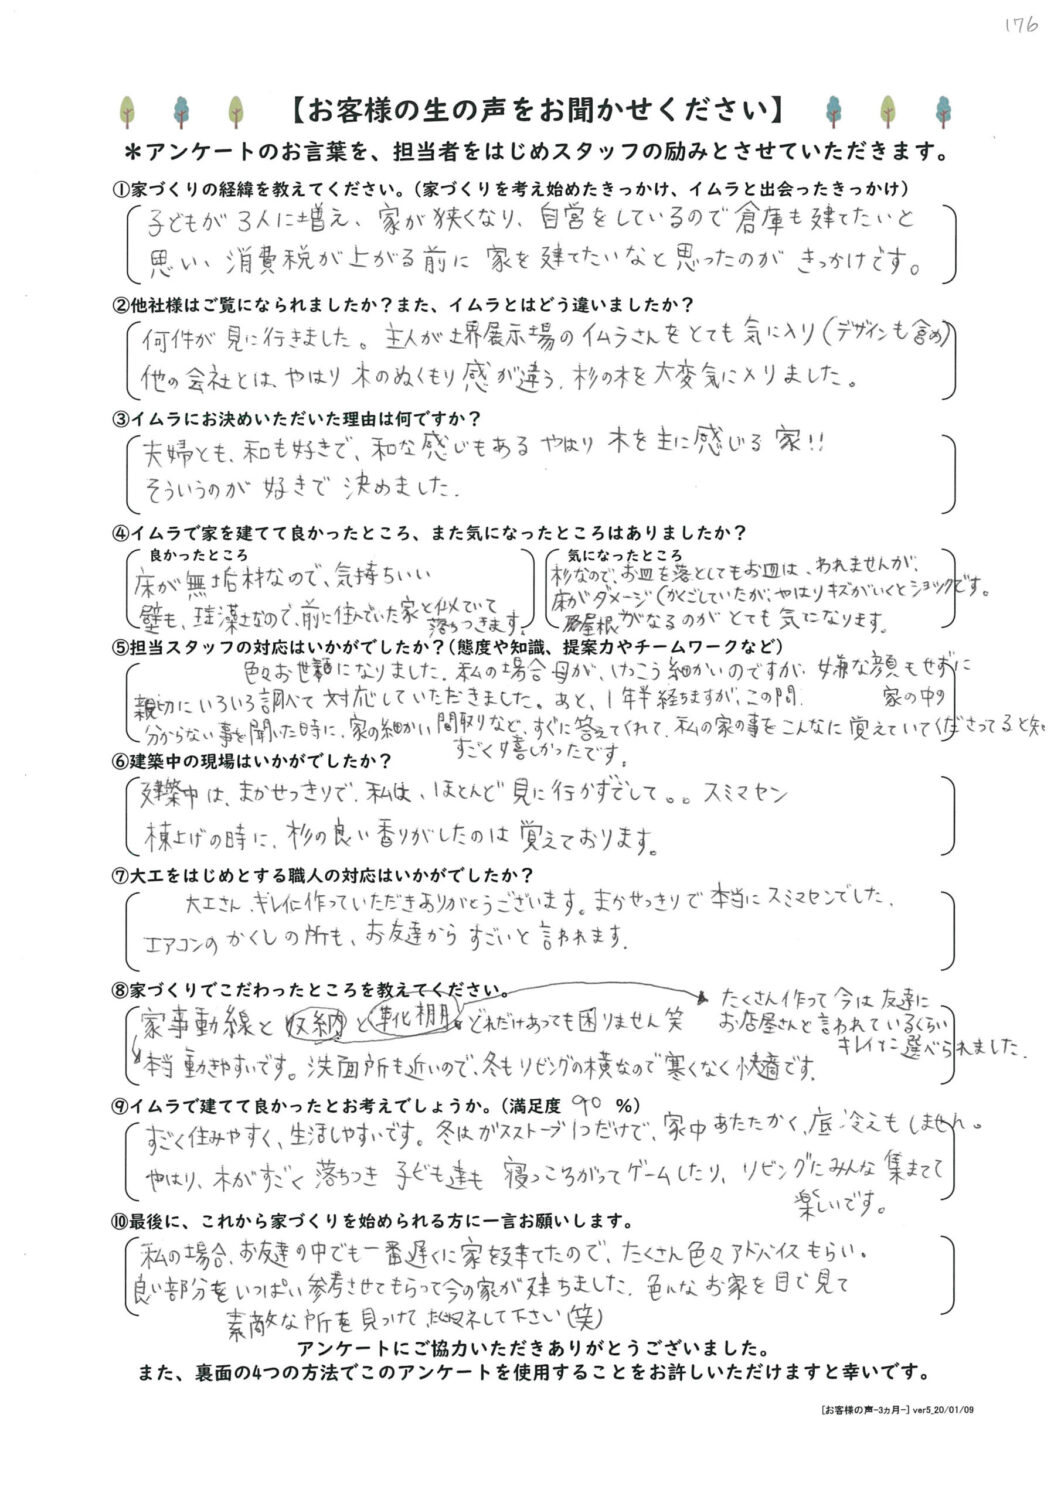 176
【お客様の生の声をお聞かせください】
＊アンケートのお言葉を、担当者をはじめスタッフの励みとさせていただきます。
①家づくりの経緯を教えてください。(家づくりを考え始めたきっかけ、イムラと出会ったきっかけ)
子どもが3人に増え、家が狭くなり、自営をしているので倉庫も建てたいと
思い、消費税が上がる前に家を建てたいなと思ったのがきっかけです。
②他社様はご覧になられましたか？また、イムラとはどう違いましたか？
何件か見に行きました。主人が堺展示場のイムラさんをとても気に入り(デザインも含め)
他の会社とは、やはり木のぬくもり感が違う、杉の木を大変気に入りました。
③イムラにお決めいただいた理由は何ですか？
夫婦とも、和も好きで、和な感じもあるやはり木を主に感じる家!!
そういうのが好きで決めました.
④イムラで家を建てて良かったところ、また気になったところはありましたか？
良かったところ
床が無垢材なので、気持ちいい
壁も、珪藻土なので、前に住んでいた家と似ていて
落ちつきます。
気になったところ
杉なので、お皿を落としてもお皿は、われませんが、
床がダメージ(かくごしていたが、やはりキズがいくとショックです。
屋根がなるのがとても気になります。
⑤担当スタッフの対応はいかがでしたか？(態度や知識、提案力やチームワークなど)
色々お世話になりました.私の場合母が、けっこう細かいのですが、嫌な顔もせずに
親切にいろいろ調べて対応していただきました。あと、1年半経ちますが、この間、家の中の
分からない事を聞いた時に、家の細かい間取りなど、すぐに答えてくれて、私の家の事をこんなに覚えていてくださってると知
すごく嬉しかったです。
⑥建築中の現場はいかがでしたか？
建築中は、まかせっきりで、私は、ほとんど見に行かずでして。。スミマセン
棟上げの時に、杉の良い香りがしたのは覚えております。
⑦大工をはじめとする職人の対応はいかがでしたか？
大工さん、キレイに作っていただきありがとうございます。まかせっきりで本当にスミマセンでした.
エアコンのかくしの所も、お友達からすごいと言われます.
⑧家づくりでこだわったところを教えてください。
たくさん作って今は友達に
お店屋さんと言われているくらい
キレイに選べられました.
家事動線と収納と準化棚。どれだけあっても困りません笑
本当動きやすいです。洗面所も近いので、冬もリビングの横なので寒くなく快適です.
⑨イムラで建てて良かったとお考えでしょうか。(満足度 90 %)
すごく住みやすく、生活しやすいです。冬はガスストーブ1つだけで、家中あたたかく、底冷えもしません。
やはり、木がすごく落ちつき子ども達も寝っころがってゲームしたり、リビングにみんな集まてて
楽しいです。
⑩最後に、これから家づくりを始められる方に一言お願いします。
私の場合、お友達の中でも一番遅くに家を建てたので、たくさん色々アドバイスもらい。
良い部分をいっぱい参考させてもらって今の家が建ちました.色んなお家を目で見て
素敵な所を見つけてマネして下さい(笑)
アンケートにご協力いただきありがとうございました。
また、裏面の4つの方法でこのアンケートを使用することをお許しいただけますと幸いです。
[お客様の声-3ヵ月-] ver5_20/01/09